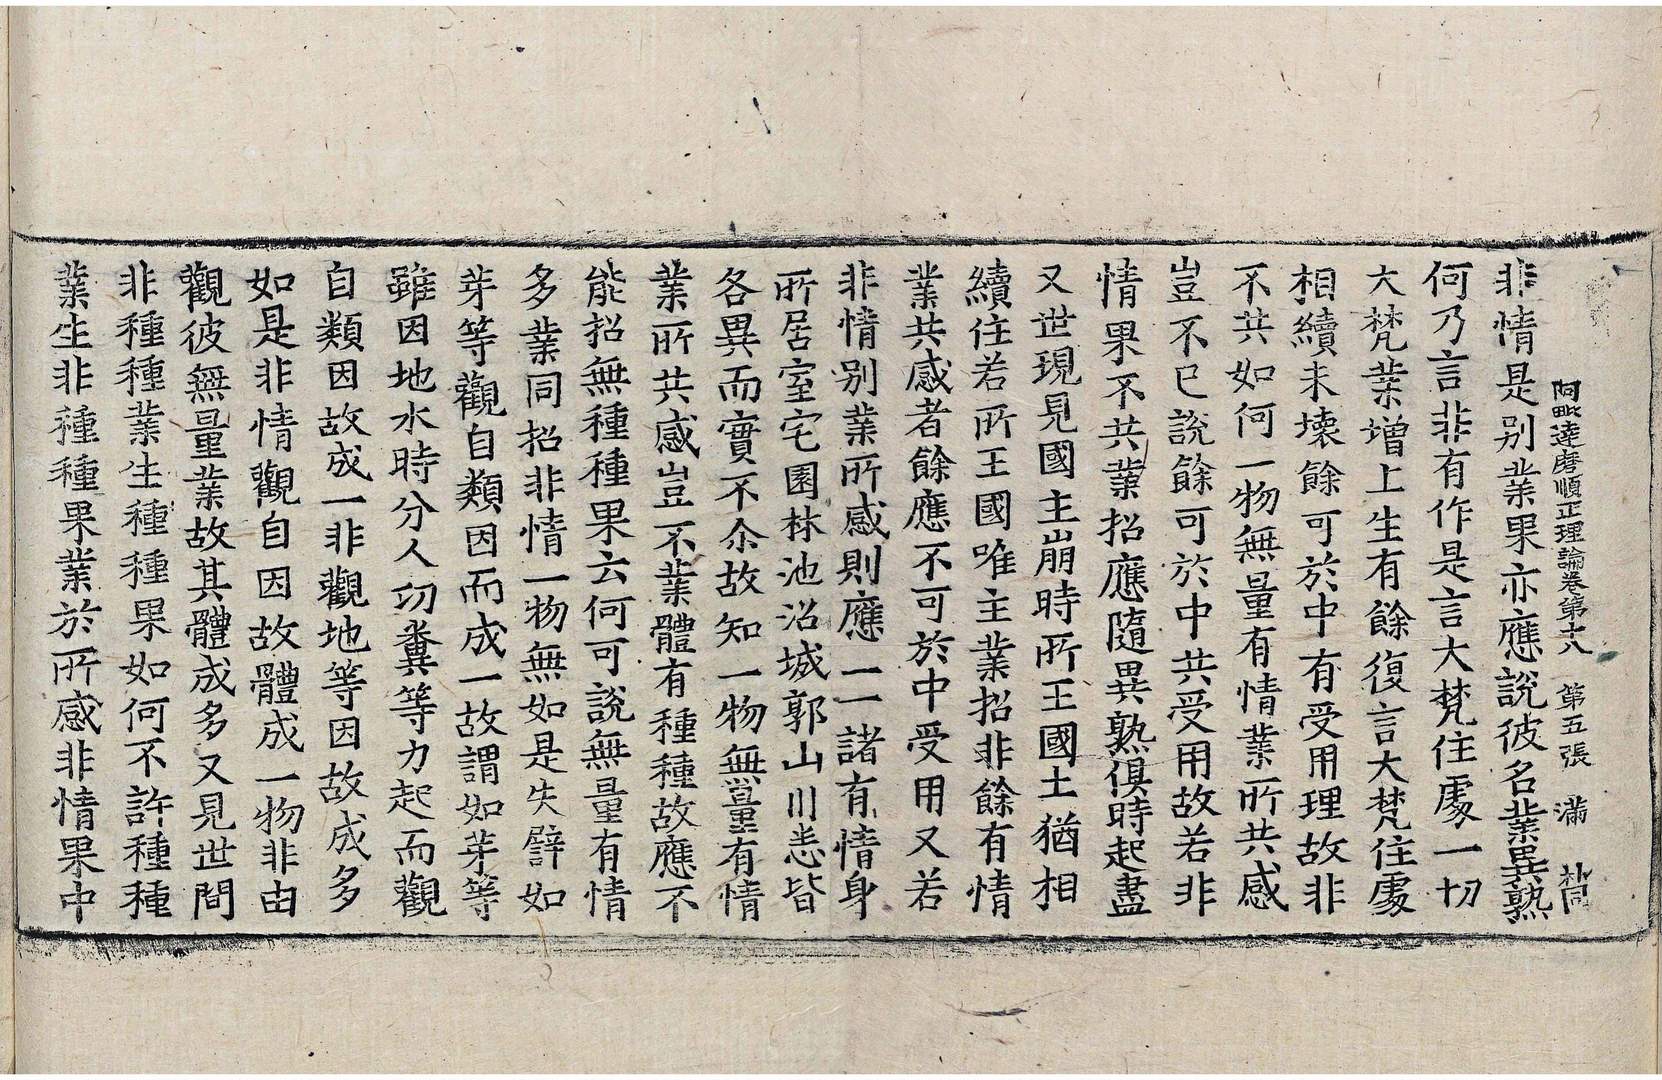 阿毗達磨順正理論卷第十八 第五張 滿
非情是别業果亦應說彼名業異熟
何乃言非有作是言大梵住處一切
大梵業增上生有餘復言大梵住處
相續未壞餘可於中有受用理故非
不共如何一物無量有情業所共感
豈不已說餘可於中共受用故若非
情果不共業招應隨異熟俱時起盡
又世現見國主崩時所王國土猶相
續住若所王國唯主業招非餘有情
業共感者餘應不可於中受用又若
非情别業所感則應一一諸有情身
所居室宅園林池沼城郭山川悉皆
各異而實不尒故知一物無量有情
業所共感豈不業體有種種故應不
能招無種種果云何可說無量有情
多業同招非情一物無如是失譬如
芽等觀自類因而成一故謂如芽等
雖因地水時分人功糞等力起而觀
自類因故成一非觀地等因故成多
如是非情觀自因故體成一物非由
觀彼無量業故其體成多又見世間
非種種業生種種果如何不許種種
業生非種種果業於所感非情果中